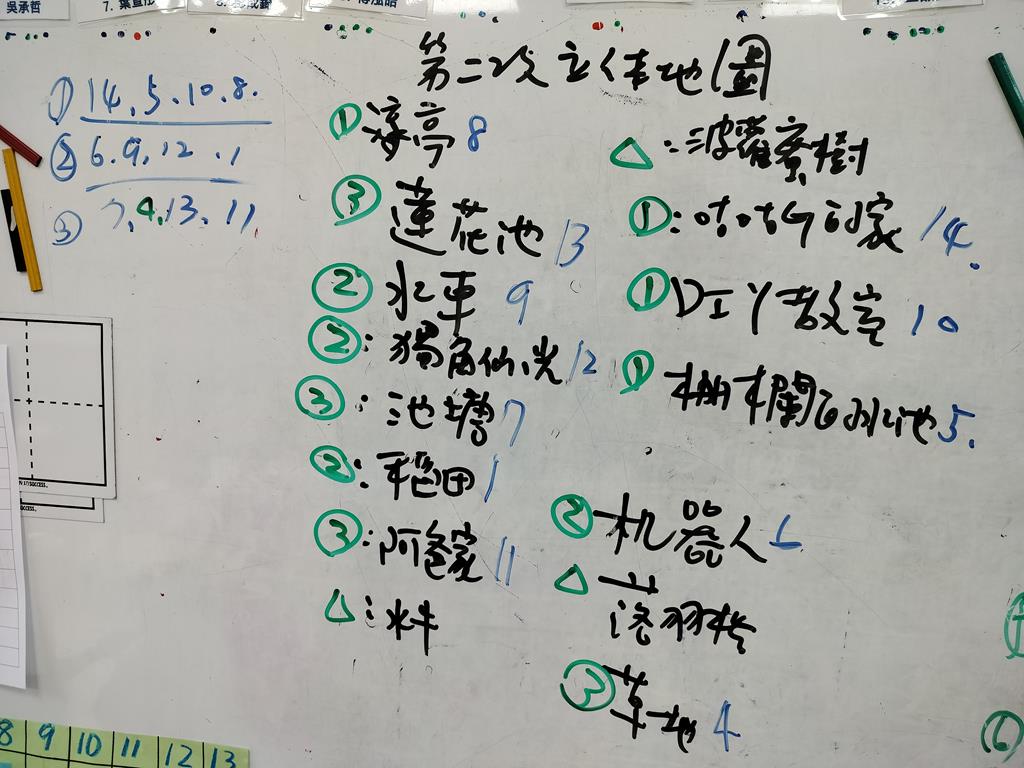 吳承哲
7. 葉宣
第二次立体地圖
① 14.5.10.8.
② 6.9.12.1
③ 7.4.13.11
① 涼亭 8
③ 蓮花池 13
② 水車 9
②: 獨角仙 12
③: 池塘 7
②: 稻田 1
③: 阿爸家 11
△: 水牛
△: 波羅蜜樹
①: 咕咕G的家 14.
① DIY教室 10
① 柵欄 水池 5.
② 机器人 6
△ 落羽松
③ 草地 4
8 9 10 11 12 13